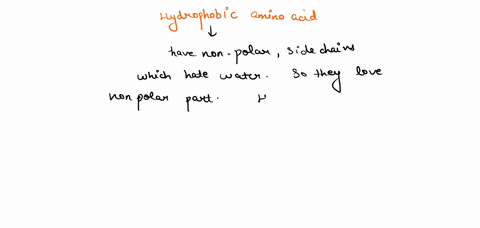 Hydrophobic amino acid
↓
have non-polar, side chains
which hate water. So they love
non polar part. H